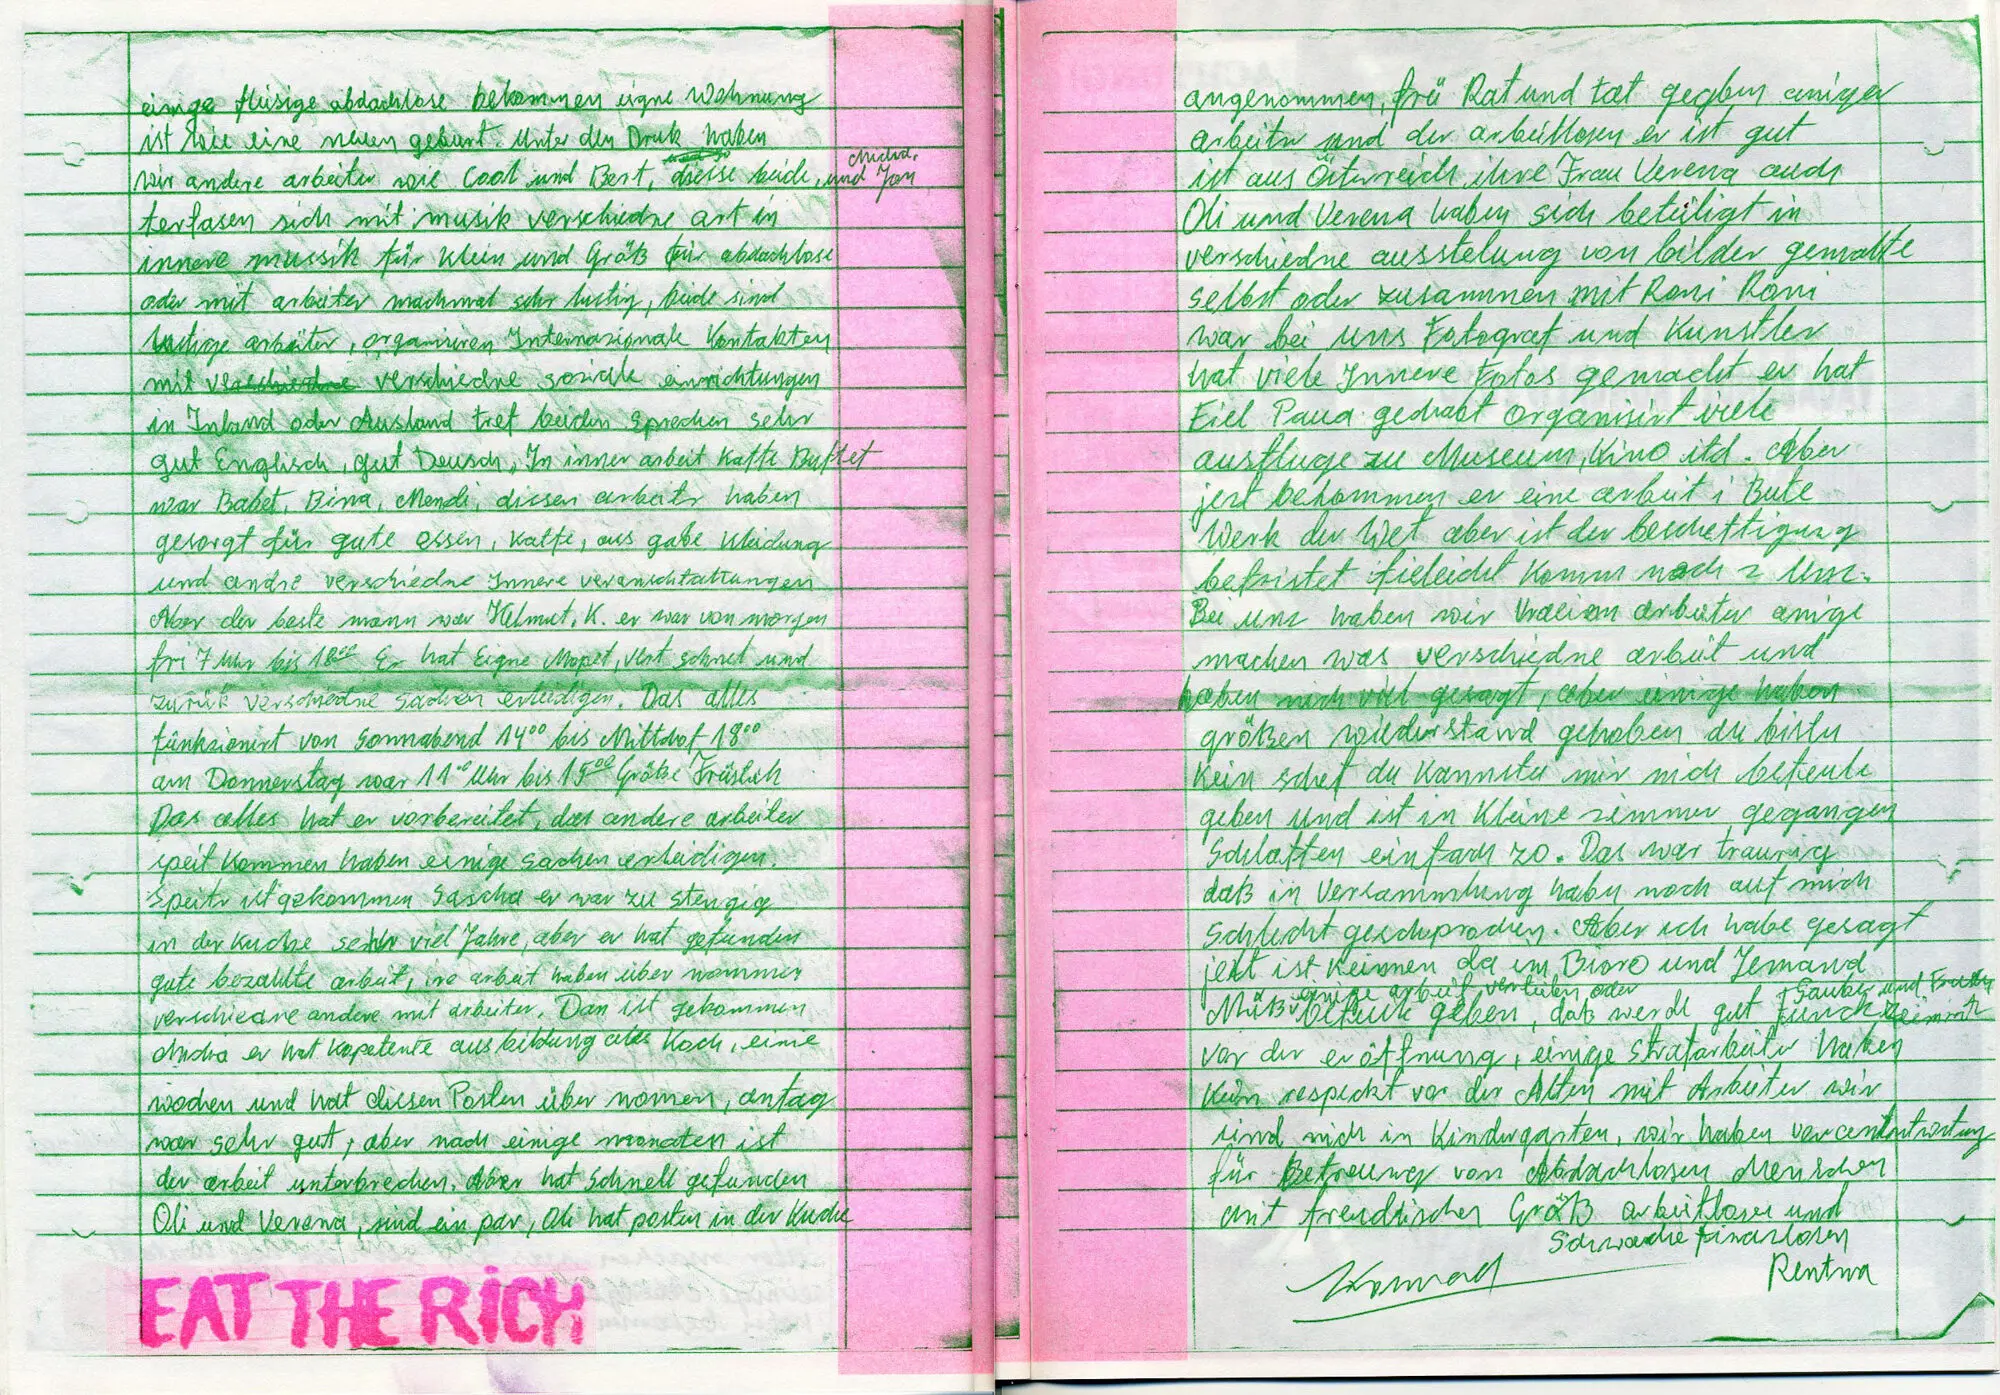 einige fleisige abdachlose bekommen eigne Wohnung
ist wie eine neuen geburt. Unter den Druk haben
wir andere arbeiter wie Coal und Bert, diesse beide, und Jan
terfasen sich mit musik verschiedne art in
innere mussik für klein und Größ für abdachlose
oder mit arbeiter machmal sehr lustig, beide sind
lustige arbeiter, organisiren Internazionale Kontakten
mit verschiedne verschiedne soziale einrichtungen
in Inland oder Ausland tref beiden Sprechen sehr
gut Englisch, gut Deusch, In inner arbeit Kaffe Buffet
war Babet, Bina, Mendi, diesen arbeitr haben
gesorgt für gute essen, Kaffe, aus gabe Kleidung
und andre verschiedne Innere veranschtaltungen
Aber der beste mann war Helmut, K. er war von morgen
fri 7 Uhr bis 18⁰⁰ Er hat Eigne Mopet, schnel und
zurük verschiedne Sachen erleidigen. Das alles
fünkzionirt von Sonnabend 14⁰⁰ bis Mittdof 18⁰⁰
am Donnerstag war 11⁰⁰ Uhr bis 15⁰⁰ Größe Früslich
Das alles hat er vorbereitet, das andere arbeiter
speit kommen haben einige sachen erleidigen.
Speitr ist gekommen Sascha er war zu stengig
in der Kuche sehr viel Jahre, aber er hat gefunden
gute bezahlte arbeit, ire arbeit haben über nommen
verschiedne andere mit arbeiter. Dan ist gekommen
er hat Kopetente ausbildung als Koch, eine
wochen und hat diesen Posten über nomen, anfag
war sehr gut, aber nach einige monaten ist
der arbeit unterbrechen. Aber hat Schnell gefunden
Oli und Verena, sind ein par, Oli hat posten in der Kuche
EAT THE RiCH
angenommen, frü Rat und tat gegben einiger
arbeitr und der arbeitlosen er ist gut
ist aus Österreich ihre Frau Verena auch
Oli und Verena haben sich beteiligt in
verschiedne ausstelung von bilder gemalte
selbst oder zusammen mit Roni Roni
war bei uns Fotograf und Kunstler
hat viele Innere Fotos gemacht er hat
Eiel Paua gedrabt organisirt viele
ausfluge zu Museum, Kino itd. Aber
jest bekommen er eine arbeit i Bute
Werk der Wet aber ist der bescheftigung
befristet fieleicht Komm noch z Uns.
Bei uns haben wir arbeiter einige
machen was verschiedne arbeit und
haben nich viel gesagt, aber einige haben
größen wiederstand gehoben du bistu
Kein schef du Kannstu mir nich befeule
geben und ist in Kleine zimmer gegangen
Schlaffen einfach zo. Das war traurig
daß in Versammlung haben noch auf mich
Schlecht geschprochen. Aber ich habe gesagt
jett ist Keinnen da im Bioro und Jemand
einige arbeit verteilen oder
Müß befeule geben, daß werde gut Sauber und
vor der eröffnung, einige Strafarbeiter haben
Kein respeckt vor der Alten mit Arbeiter wir
sind nich in Kindergarten, wir haben verantwortung
für Betreung von Abdachlosen Menschen
mit frendischen Größ arbeitloser und
Schwache Finanzlosen
Rentna
Konrad